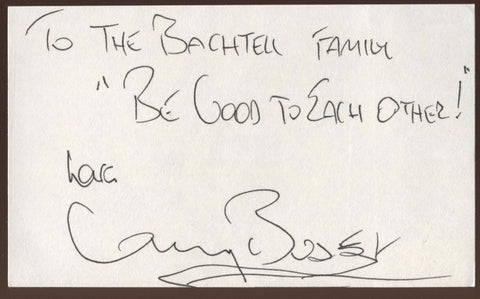 To The Bachtell Family
"Be Good To Each Other!"
Love
Gary Busey